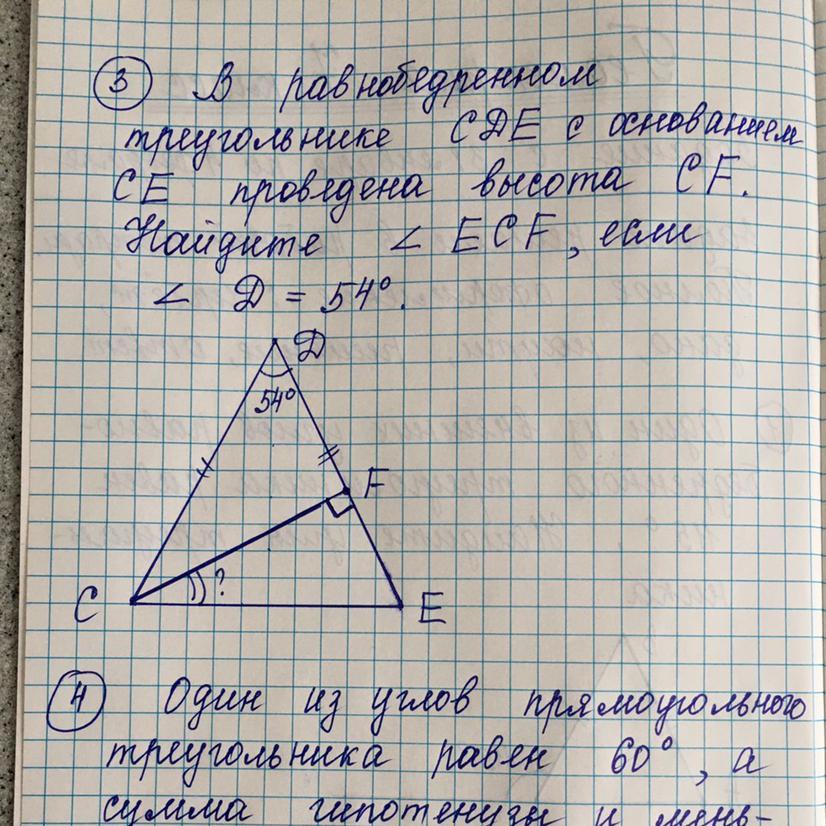 3 В равнобедренном
треугольнике CDE с основанием
CE проведена высота CF.
Найдите ∠ ECF, если
∠ D = 54°.
D
54°
F
C
?
E
4 Один из углов прямоугольного
треугольника равен 60°, а
сумма гипотенузы и мень-